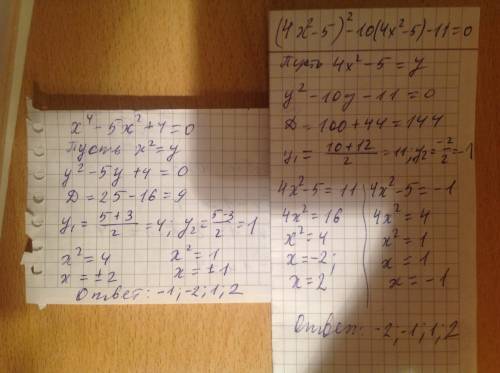 x⁴ - 5x² + 4 = 0
Пусть x² = y
y² - 5y + 4 = 0
D = 25 - 16 = 9
y₁ = (5 + 3)/2 = 4; y₂ = (5 - 3)/2 = 1
x² = 4 x² = 1
x = ±2 x = ±1
Ответ: -1; -2; 1; 2
(4x² - 5)² - 10(4x² - 5) - 11 = 0
Пусть 4x² - 5 = y
y² - 10y - 11 = 0
D = 100 + 44 = 144
y₁ = (10 + 12)/2 = 11; y₂ = -2/2 = -1
4x² - 5 = 11 4x² - 5 = -1
4x² = 16 4x² = 4
x² = 4 x² = 1
x = -2; x = 1
x = 2 x = -1
Ответ: -2; -1; 1; 2